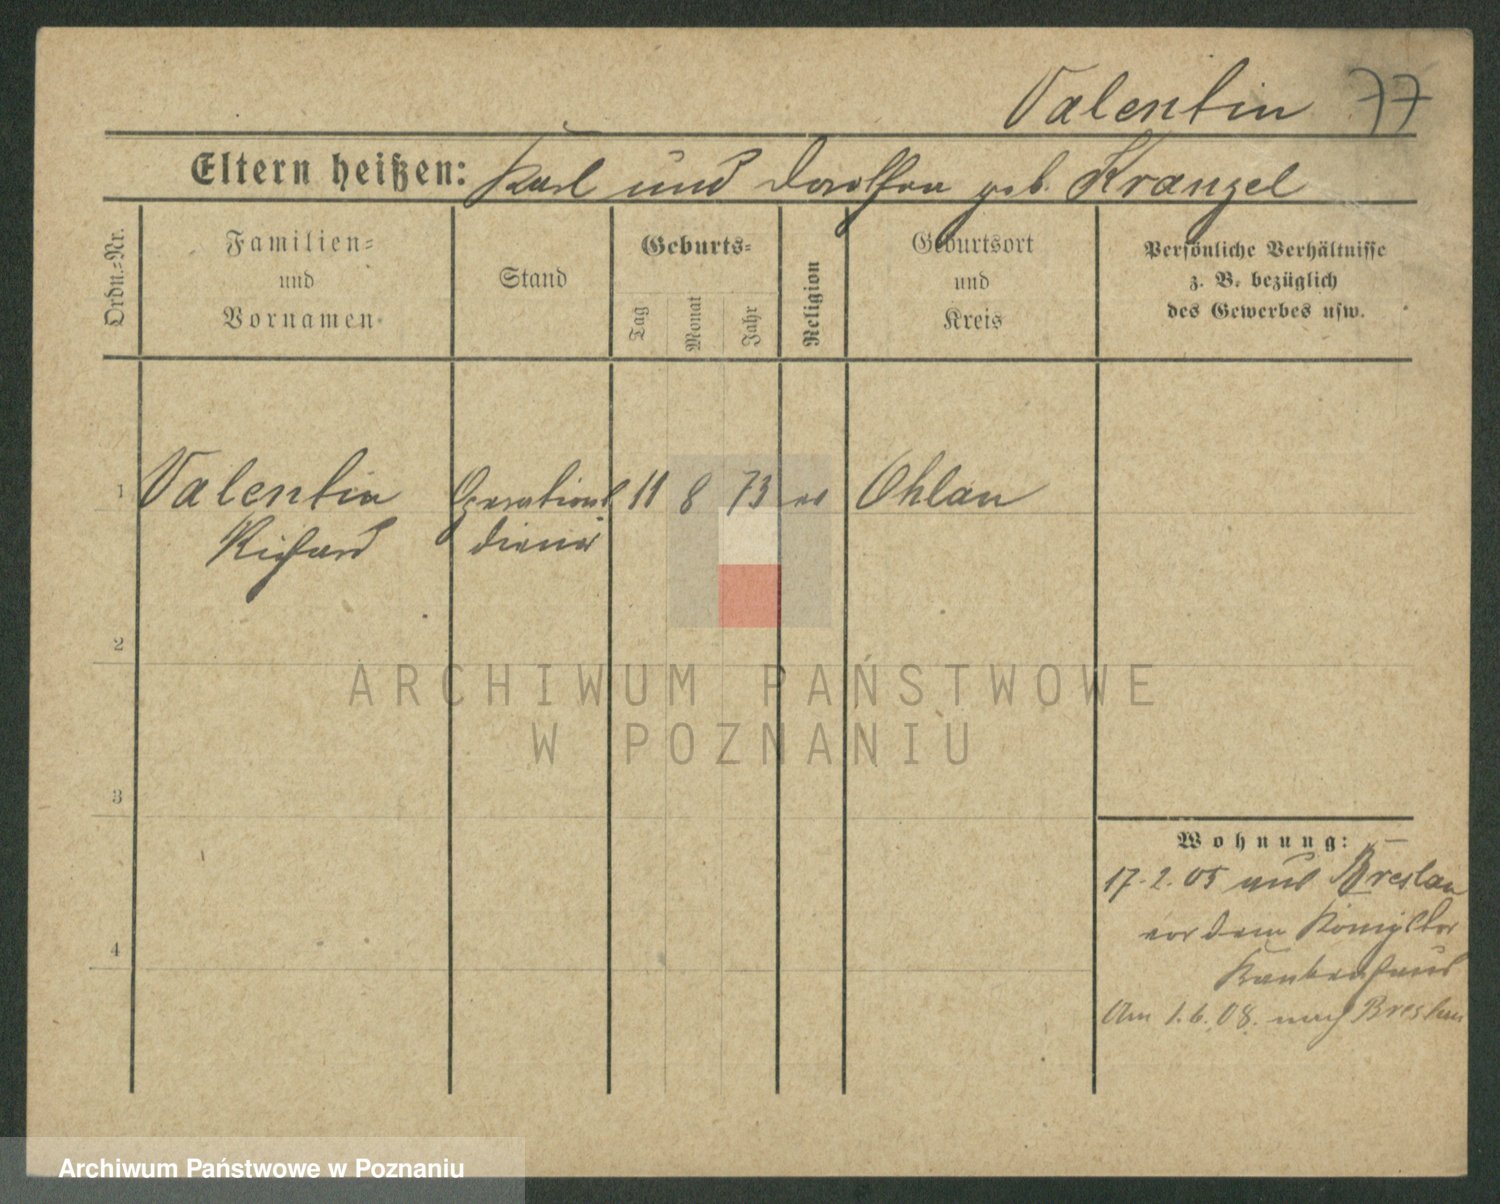 Valentin 77
Eltern heißen: Karl und Dorothea geb. Krangel
Ordn.-Nr.
Familien-
und
Vornamen
Stand
Geburts-
Tag
Monat
Jahr
Religion
Geburtsort
und
Kreis
Persönliche Verhältnisse
z. B. bezüglich
des Gewerbes usw.
1 Valentin Operations 11 8 73 ev Ohlau
Richard diener
2
3
4
Wohnung:
17.2.05 aus Breslau
vor dem Königstor
Krankenhaus
Am 1.6.08. nach Breslau
ARCHIWUM PAŃSTWOWE
W POZNANIU
Archiwum Państwowe w Poznaniu